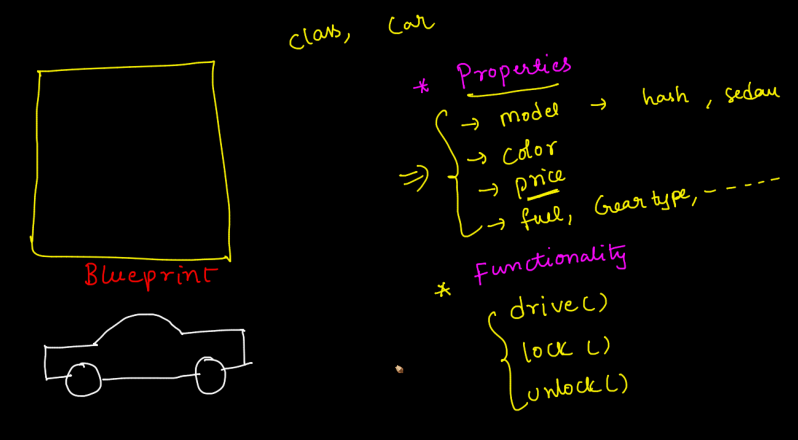 class, car
* Properties
→ model → hash, sedan
→ color
⇒ → price
→ fuel, Geartype, -----
Blueprint
* Functionality
drive()
lock()
unlock()